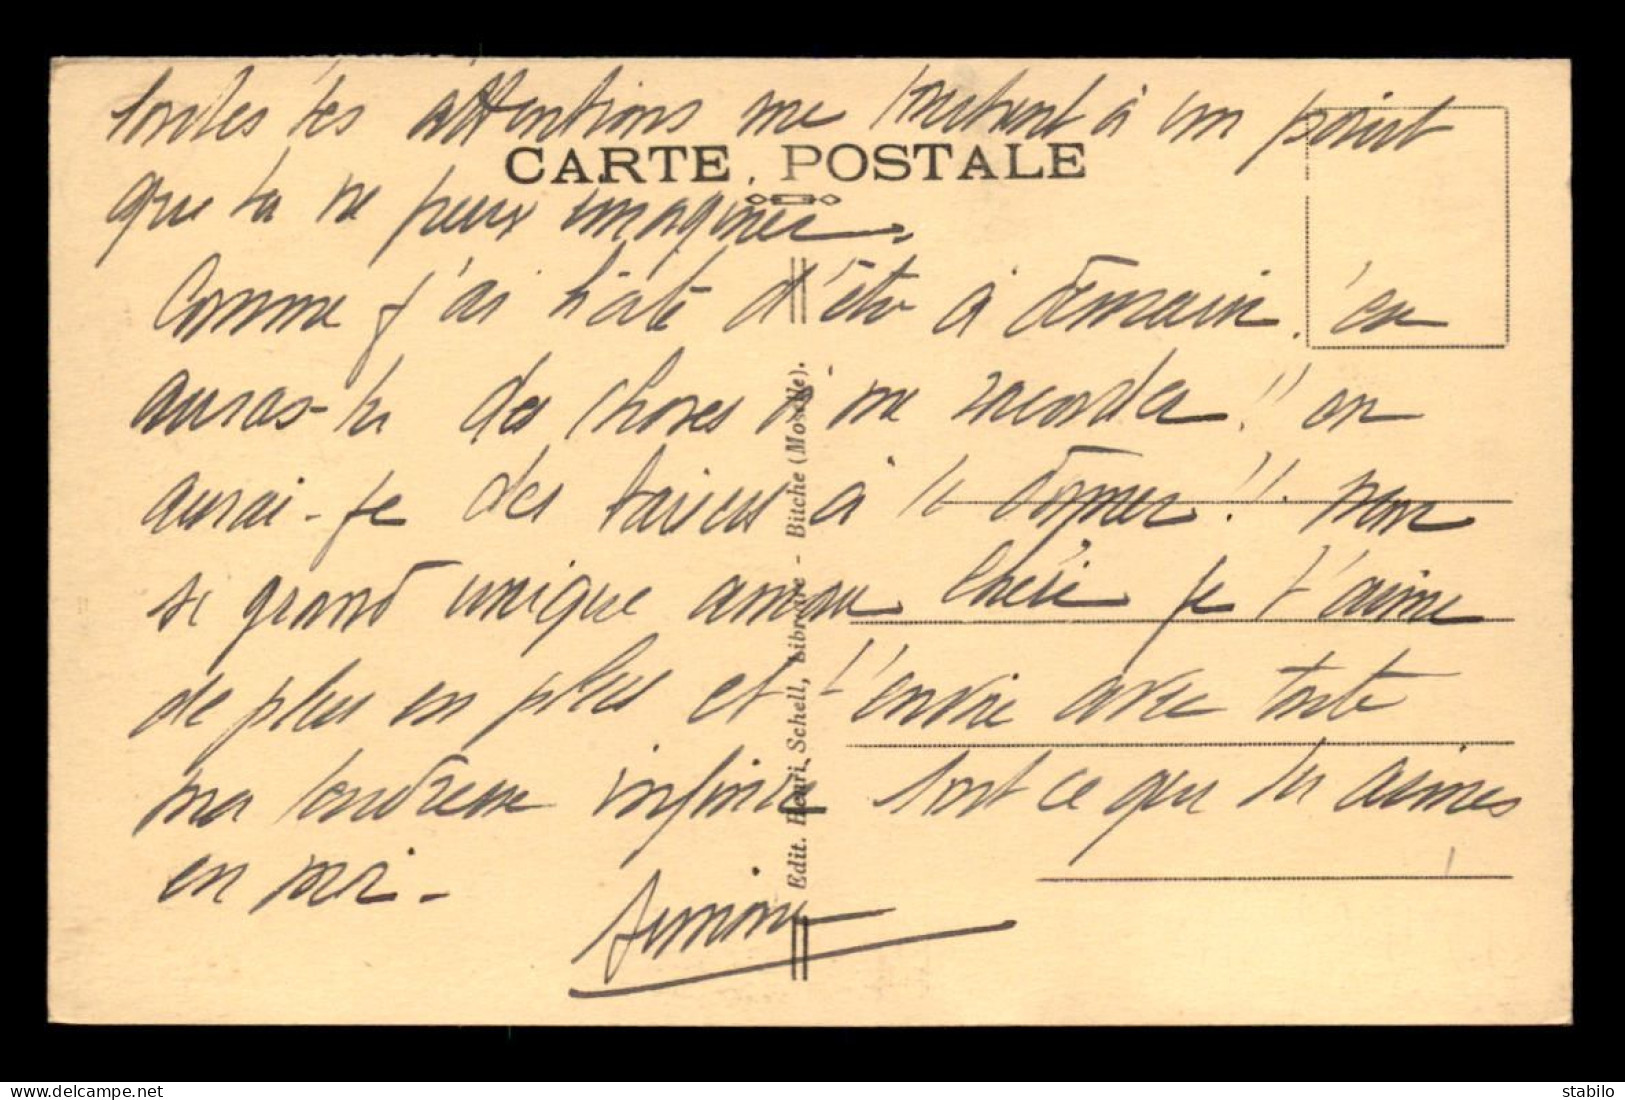 toutes tes attentions me touchent à un point
CARTE POSTALE
que tu ne peux imaginer.
Comme j'ai hâte d'être à demain. en
auras-tu des choses à me raconter!! en
aurai-je des baisers à te donner!! mon
si grand unique amour Chéri je t'aime
de plus en plus et t'envoie avec toute
ma tendresse infinie tout ce que tu aimes
en moi -
Simone
Edit. Henri Schell, Libraire - Bitche (Moselle).
www.delcampe.net
stabilo